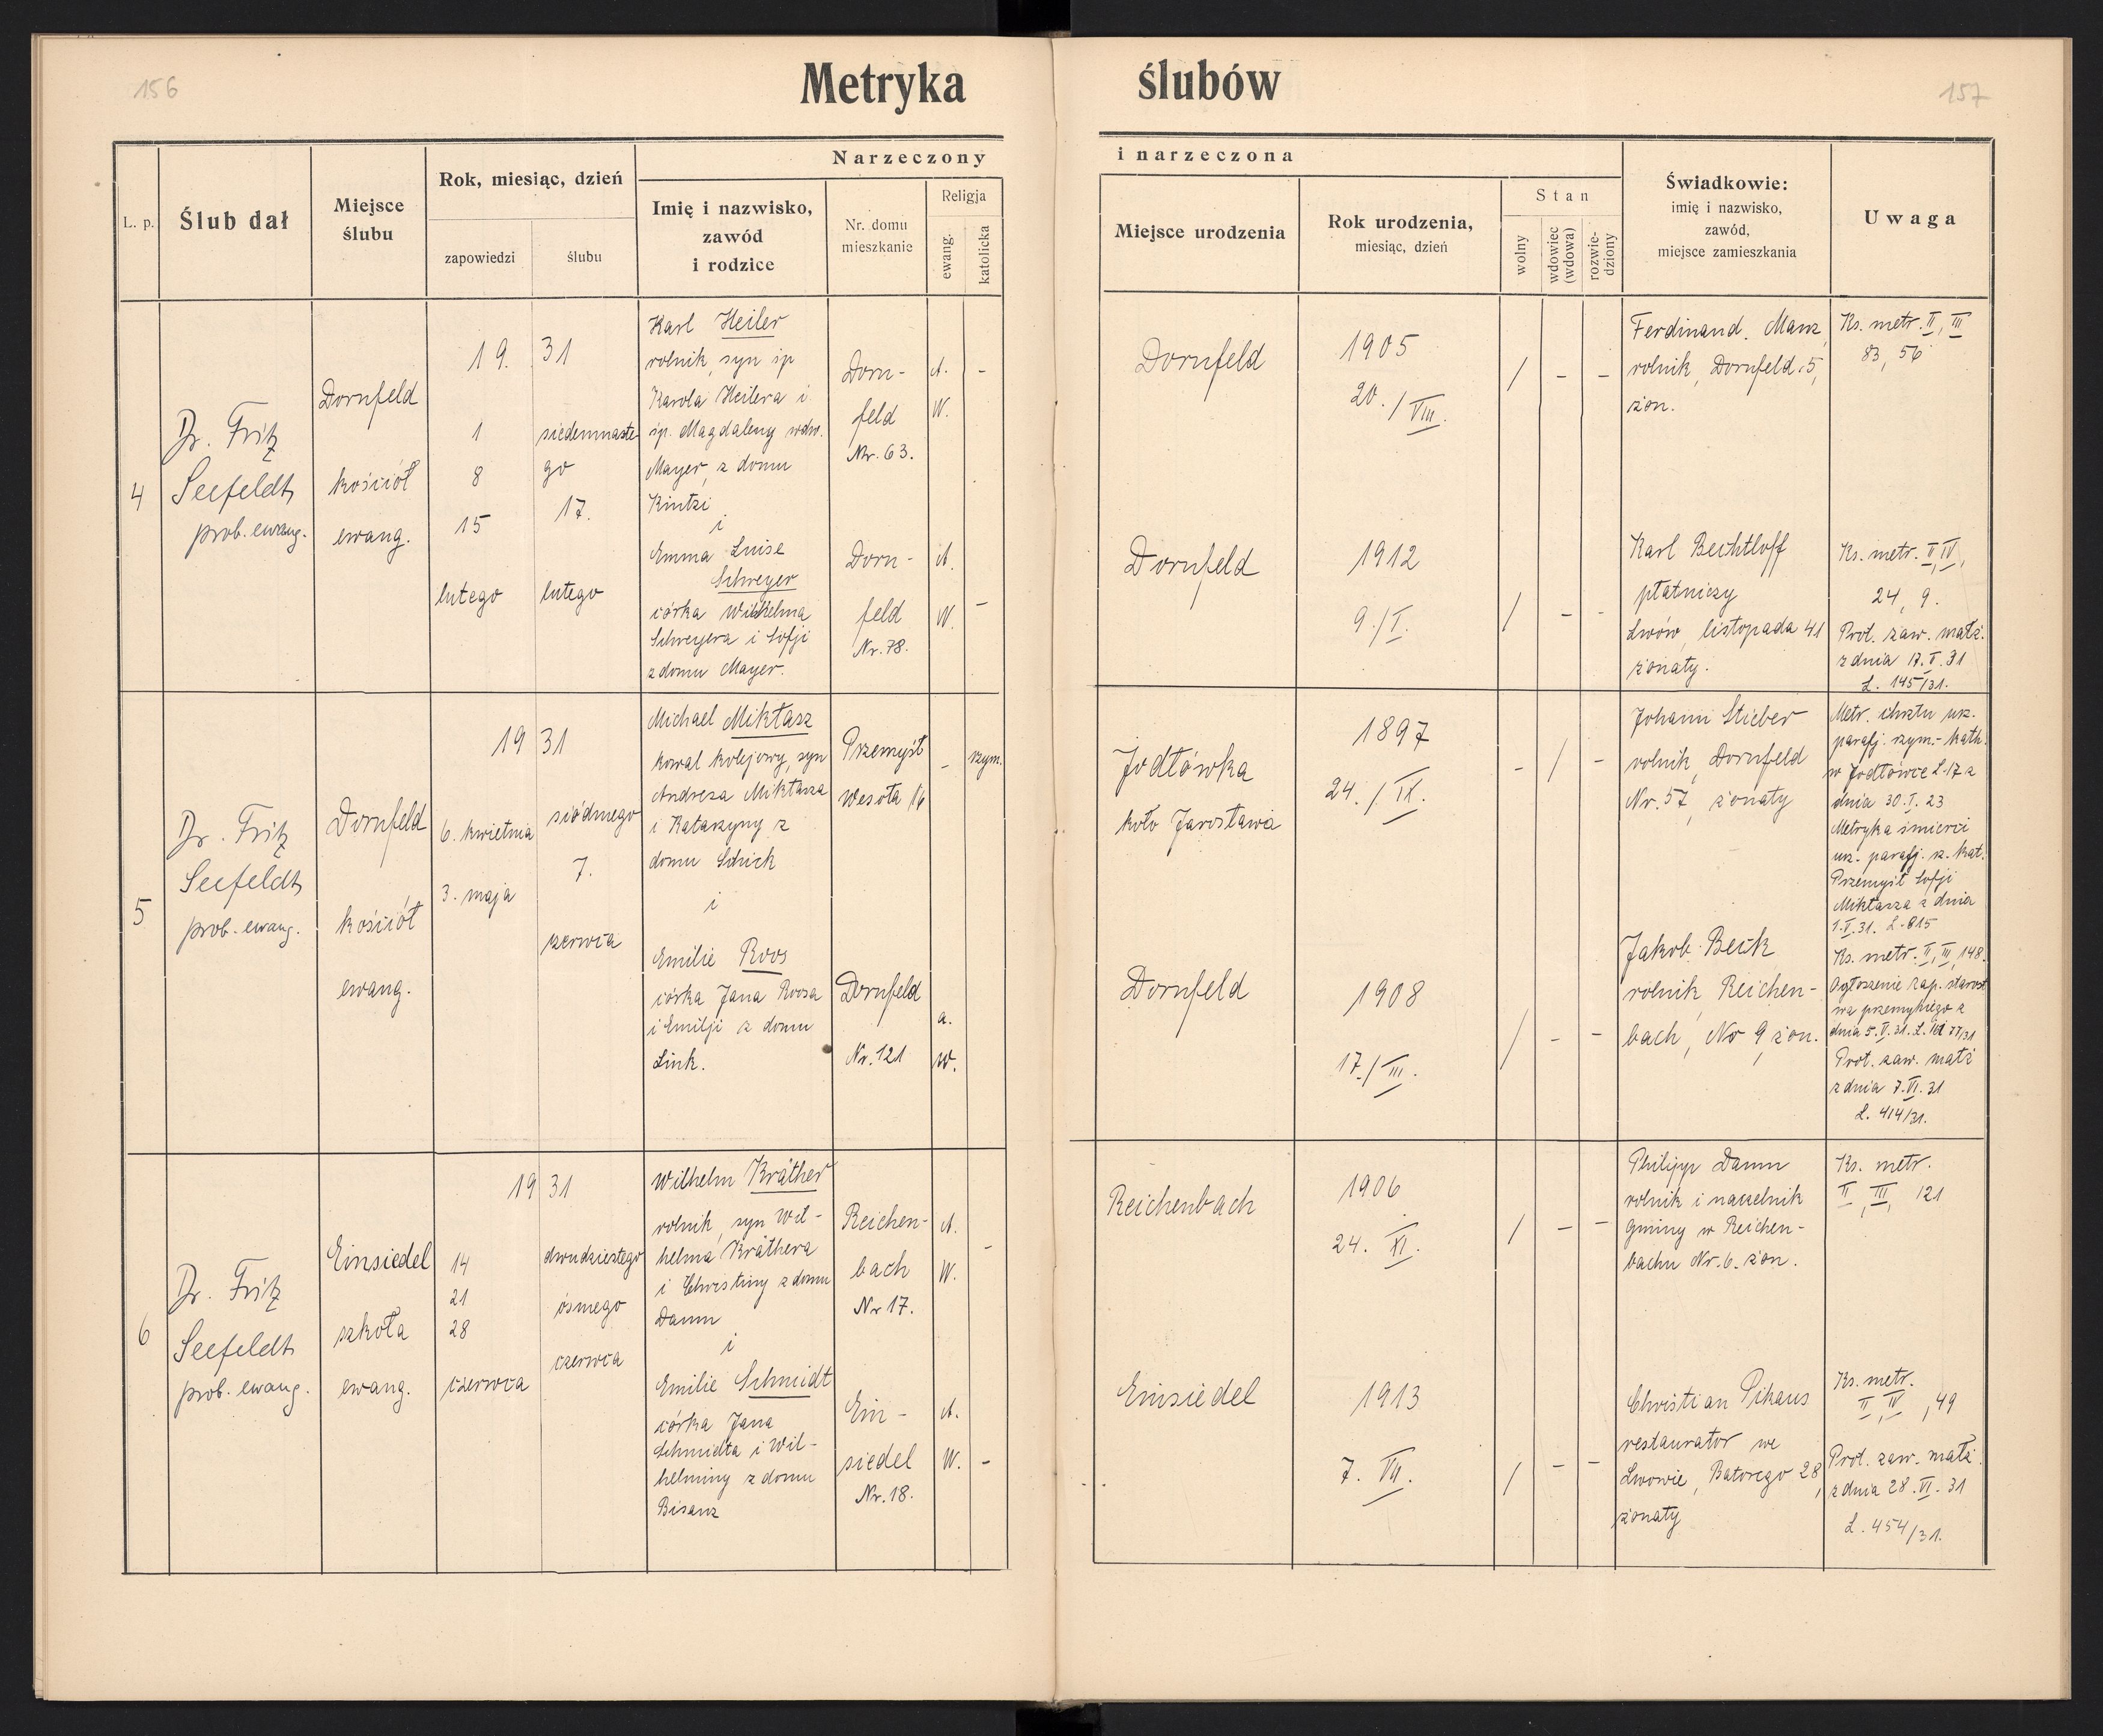 156
Metryka
ślubów
157
L. p.
Ślub dał
Miejsce
ślubu
Rok, miesiąc, dzień
zapowiedzi
ślubu
Narzeczony
Imię i nazwisko,
zawód
i rodzice
Nr. domu
mieszkanie
Religja
ewang.
katolicka
i narzeczona
Miejsce urodzenia
Rok urodzenia,
miesiąc, dzień
Stan
wolny
wdowiec
(wdowa)
rozwie-
dziony
Świadkowie:
imię i nazwisko,
zawód,
miejsce zamieszkania
Uwaga
4
Dr. Fritz
Seefeldt
prob. ewang.
Dornfeld
kościół
ewang.
19. 31
1
8
15
lutego
siedemnaste
go
17.
lutego
Karl Heiler
rolnik, syn śp
Karola Heilera i
śp. Magdaleny wdw.
Mayer, z domu
Kintzi
i
Emma Luise
Schreyer
córka Wilhelma
Schreyera i Zofji
z domu Mayer.
Dorn-
feld
Nr. 63.
A.
W.
-
Dorn-
feld
Nr. 78.
A.
W.
-
Dornfeld
1905
20. / VIII.
/ - -
Ferdinand Manz,
rolnik, Dornfeld 5,
żon.
Ks. metr. II, III
83, 56
Dornfeld
1912
9. / I.
/ - -
Karl Bechtloff
płatniczy
Lwów, listopada 41
żonaty.
Ks. metr. II, IV,
24, 9.
Prot. zaw. małż.
z dnia 17. I. 31
L. 145/31.
5
Dr. Fritz
Seefeldt
prob. ewang.
Dornfeld
kościół
ewang.
19 31
6. kwietnia
3. maja
siódmego
7.
czerwca
Michael Mikłasz
kowal kolejowy, syn
Andrzea Mikłasza
i Katarzyny z
domu Schick
i
Emilie Roos
córka Jana Roosa
i Emilji z domu
Link.
Przemyśl
Wesoła 16
-
rzym.
Dornfeld
Nr. 121
a.
w.
Jodłówka
koło Jarosława
1897
24. / IX.
- / -
Johann Stieber
rolnik, Dornfeld
Nr. 57, żonaty
Metr. chrztu urz.
parafj. rzym.-kath.
w Jodłówce L. 17 z
dnia 30. I. 23
Metryka śmierci
urz. parafj. rz. kat.
Przemyśl Zofji
Mikłasza z dnia
L. 815
Dornfeld
1908
17. / III.
/ - -
Jakob Beck
rolnik, Reichen-
bach, No 9, żon.
Ks. metr. II, III, 148.
Ogłoszenie zap. starost
wa przemyskiego z
dnia 5. V. 31.
Prot. zaw. małż
z dnia 7. VI. 31
L. 414/31.
6
Dr. Fritz
Seefeldt
prob. ewang.
Einsiedel
szkoła
ewang.
19 31
14
21
28
czerwca
dwudziestego
ósmego
czerwca
Wilhelm Kräther
rolnik, syn Wil-
helma Kräthera
i Christiny z domu
Damm
i
Emilie Schmidt
córka Jana
Schmidta i Wil-
helminy z domu
Bisanz
Reichen-
bach
Nr 17.
A.
W.
-
Ein-
siedel
Nr. 18.
A.
W. -
Reichenbach
1906
24. XI.
/ - -
Philipp Damm
rolnik i naczelnik
gminy w Reichen-
bachu Nr. 6. żon.
Ks. metr.
II, III, 121
Einsiedel
1913
7. VII.
/ - -
Christian Pikaus
restaurator we
Lwowie, Batorego 28,
żonaty
Ks. metr.
II, IV, 49
Prot. zaw. małż.
z dnia 28. VI. 31
L. 454/31.